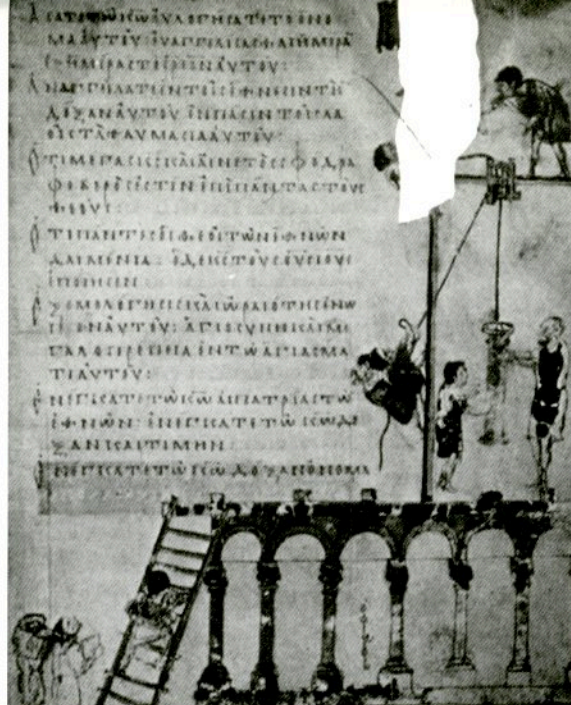 ΑCΑΤΕ ΤΩ ΚΩ ΕΥΛΟΓΗCΑΤΕ ΤΟ ΟΝΟ
ΜΑ ΑΥΤΟΥ: ΕΥΑΓΓΕΛΙCΑCΘΑΙ ΗΜΕΡΑ
ΕΞ ΗΜΕΡΑC ΤΟ CΡΙΟΝ ΑΥΤΟΥ:
ΑΝΑΓΓΙΛΑΤΕ ΕΝ ΤΟΙC ΕΘΝΕCΙΝ ΤΗΝ
ΔΟΞΑΝ ΑΥΤΟΥ ΕΝ ΠΑCΙΝ ΤΟΙC ΛΑ
ΟΙC ΤΑ ΘΑΥΜΑCΙΑ ΑΥΤΟΥ:
ΟΤΙ ΜΕΓΑC ΚC ΚΑΙ ΑΙΝΕΤΟC CΦΟΔΡΑ
ΦΟΒΕΡΟC ΕCΤΙΝ ΕΠΙ ΠΑΝΤΑC ΤΟΥC
ΘΕΟΥC:
ΟΤΙ ΠΑΝΤΕC ΟΙ ΘΕΟΙ ΤΩΝ ΕΘΝΩΝ
ΔΑΙΜΟΝΙΑ: Ο ΔΕ ΚC ΤΟΥC ΟΥΝΟΥC
ΕΠΟΙΗCΕΝ
ΕΞΟΜΟΛΟΓΗCΙC ΚΑΙ ΩΡΑΙΟΤΗC ΕΝΩ
ΠΙΟΝ ΑΥΤΟΥ: ΑΓΙΟCΥΝΗ ΚΑΙ ΜΕ
ΓΑΛΟΠΡΕΠΕΙΑ ΕΝ ΤΩ ΑΓΙΑCΜΑ
ΤΙ ΑΥΤΟΥ:
ΕΝΕΓΚΑΤΕ ΤΩ ΚΩ ΑΙ ΠΑΤΡΙΑΙ ΤΩ
ΕΘΝΩΝ: ΕΝΕΓΚΑΤΕ ΤΩ ΚΩ ΔΟ
ΞΑΝ ΚΑΙ ΤΙΜΗΝ
ΕΝΕΓΚΑΤΕ ΤΩ ΚΩ ΔΟΞΑΝ ΟΝΟΜΑ